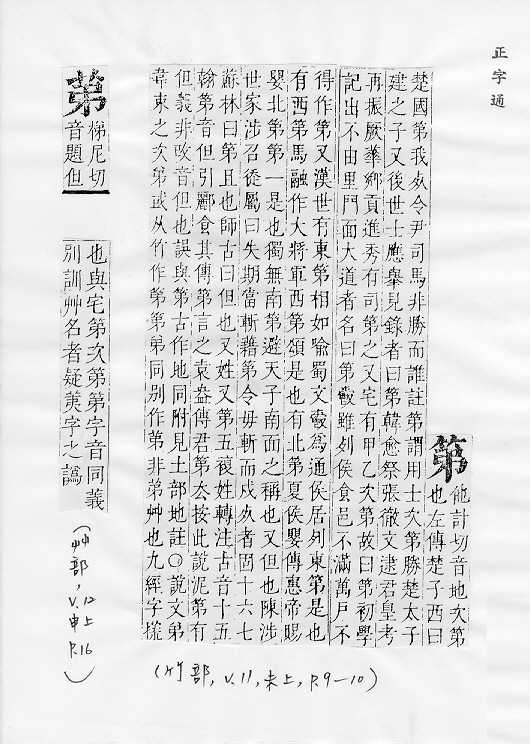 正字通
第 他計切音地次第
也左傳楚子西曰
楚國第我𣦸令尹司馬非勝而誰註第謂用士次第勝楚太子
建之子又後世士應舉見錄者曰第韓愈祭張徹文逮君皇考
再振厥華鄉貢進秀有司第之又宅有甲乙次第故曰第初學
記出不由里門面大道者名曰第爵雖列侯食邑不滿萬戸不
得作第又漢世有東第相如喻蜀文爵爲通侯居列東第是也
有西第馬融作大將軍西第頌是也有北第夏侯嬰傳惠帝賜
嬰北第第一是也獨無南第避天子南面之稱也又但也陳涉
世家涉召徒屬曰失期當斬藉第令毋斬而戍𣦸者固十六七
蘇林曰第且也師古曰但也又姓又第五複姓轉注古音十五
翰第音但引酈食其傳第言之袁盎傳君第去按此說泥第有
但義非攺音但也誤與第古作地同附見土部地註○說文弟
韋束之次第或从竹作第第同別作苐非苐艸也九經字㨾
(竹部, V.11, 未上, P.9–10)
苐 梯尼切
音題但
也與宅第次第第字音同義
別訓艸名者疑荑字之譌
(艸部, V.12 申上 P.16)